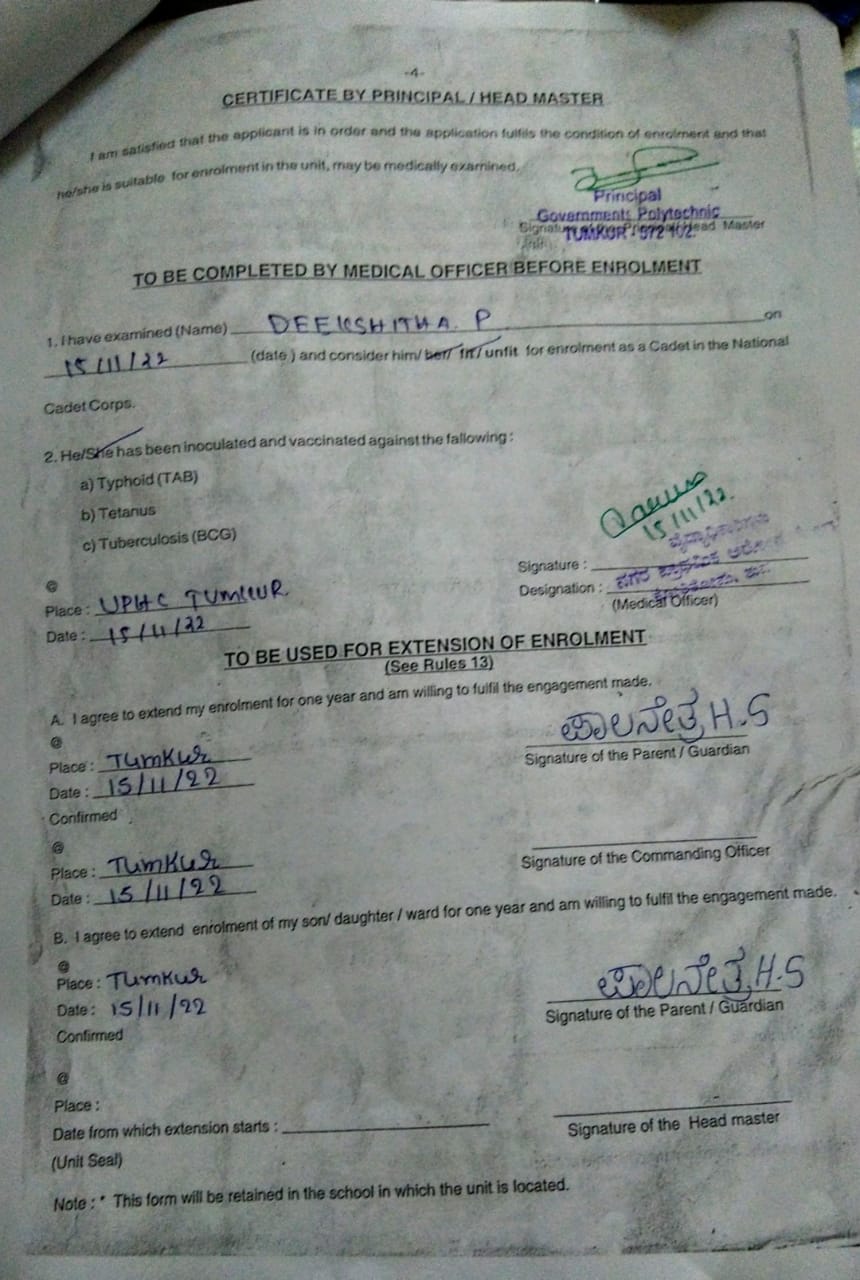 -4-
CERTIFICATE BY PRINCIPAL / HEAD MASTER
I am satisfied that the applicant is in order and the application fulfils the condition of enrolment and that
he/she is suitable for enrolment in the unit, may be medically examined.
Principal
Governments Polytechnic
TUMKUR - 572 102.
Signature of the Principal/Head Master
TO BE COMPLETED BY MEDICAL OFFICER BEFORE ENROLMENT
1. I have examined (Name) DEEKSHITHA. P on
15/11/22 (date ) and consider him/ her/ fit / unfit for enrolment as a Cadet in the National
Cadet Corps.
2. He/She has been inoculated and vaccinated against the fallowing :
a) Typhoid (TAB)
b) Tetanus
c) Tuberculosis (BCG)
15/11/22.
Signature :
@
Designation :
ನಗರ ಪ್ರಾಥಮಿಕ
Place : UPHC TUMKUR
(Medical Officer)
Date : 15/11/22
TO BE USED FOR EXTENSION OF ENROLMENT
(See Rules 13)
A. I agree to extend my enrolment for one year and am willing to fulfil the engagement made.
@
ಪಾಲನೇತ್ರ H.S
Place : Tumkur
Signature of the Parent / Guardian
Date : 15/11/22
Confirmed
@
Place : Tumkur
Signature of the Commanding Officer
Date : 15/11/22
B. I agree to extend enrolment of my son/ daughter / ward for one year and am willing to fulfil the engagement made.
@
Place : Tumkur
ಪಾಲನೇತ್ರ H.S
Date : 15/11/22
Signature of the Parent / Guardian
Confirmed
@
Place :
Date from which extension starts :
Signature of the Head master
(Unit Seal)
Note : * This form will be retained in the school in which the unit is located.